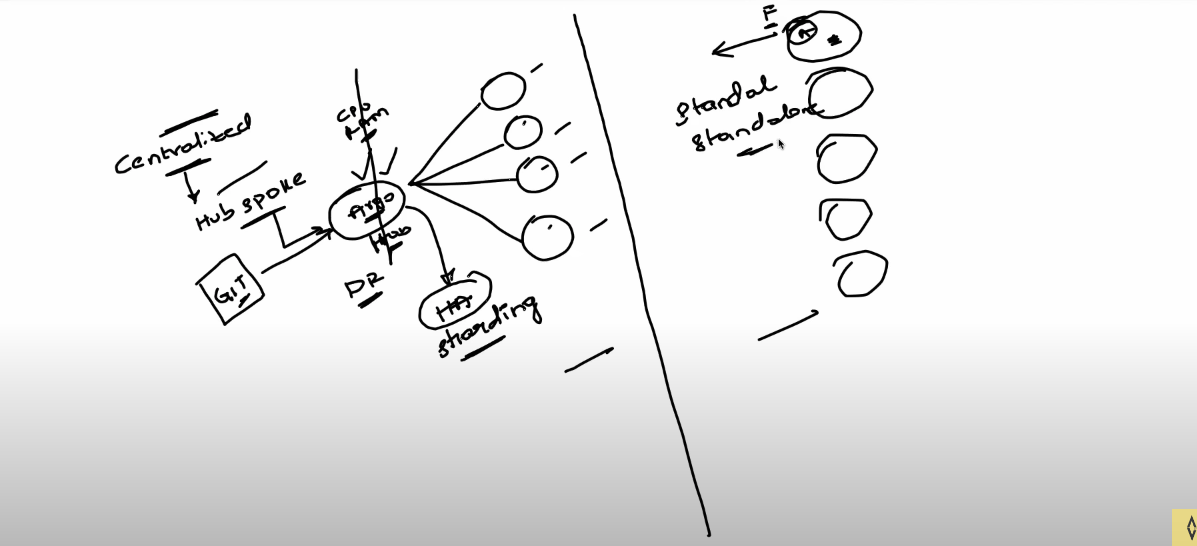 Centralized
Hub spoke
GIT
CPU
RAM
Argo
Hub
DR
HA
sharding
F
A
standal
standalone